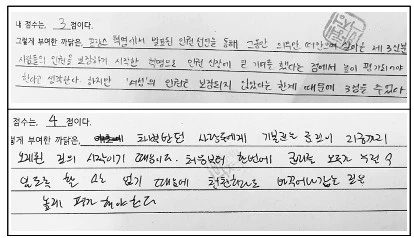 내 점수는, 3 점이다.
그렇게 부여한 까닭은, 프랑스 혁명에서 발표된 인권 선언을 통해 그동안 의무만 떠안으며 살아온 제 3신분
사람들의 인권을 보장하기 시작한 혁명으로 인권 신장에 큰 기여를 했다는 점에서 높이 평가되어야
한다고 생각한다. 하지만 '여성'의 인권은 보장되지 않았다는 한계 때문에 3점을 주었다
점수는, 4 점이다.
렇게 부여한 까닭은, 차별받던 사람들에게 기본권을 지금까지
오게된 길의 시작이기 때문이다. 처음부터 한번에 권리를 모두가 누릴 수
있도록 할 수는 없기 때문에 천천히라도 바꾸어나갔던 것은
높게 평가해야한다